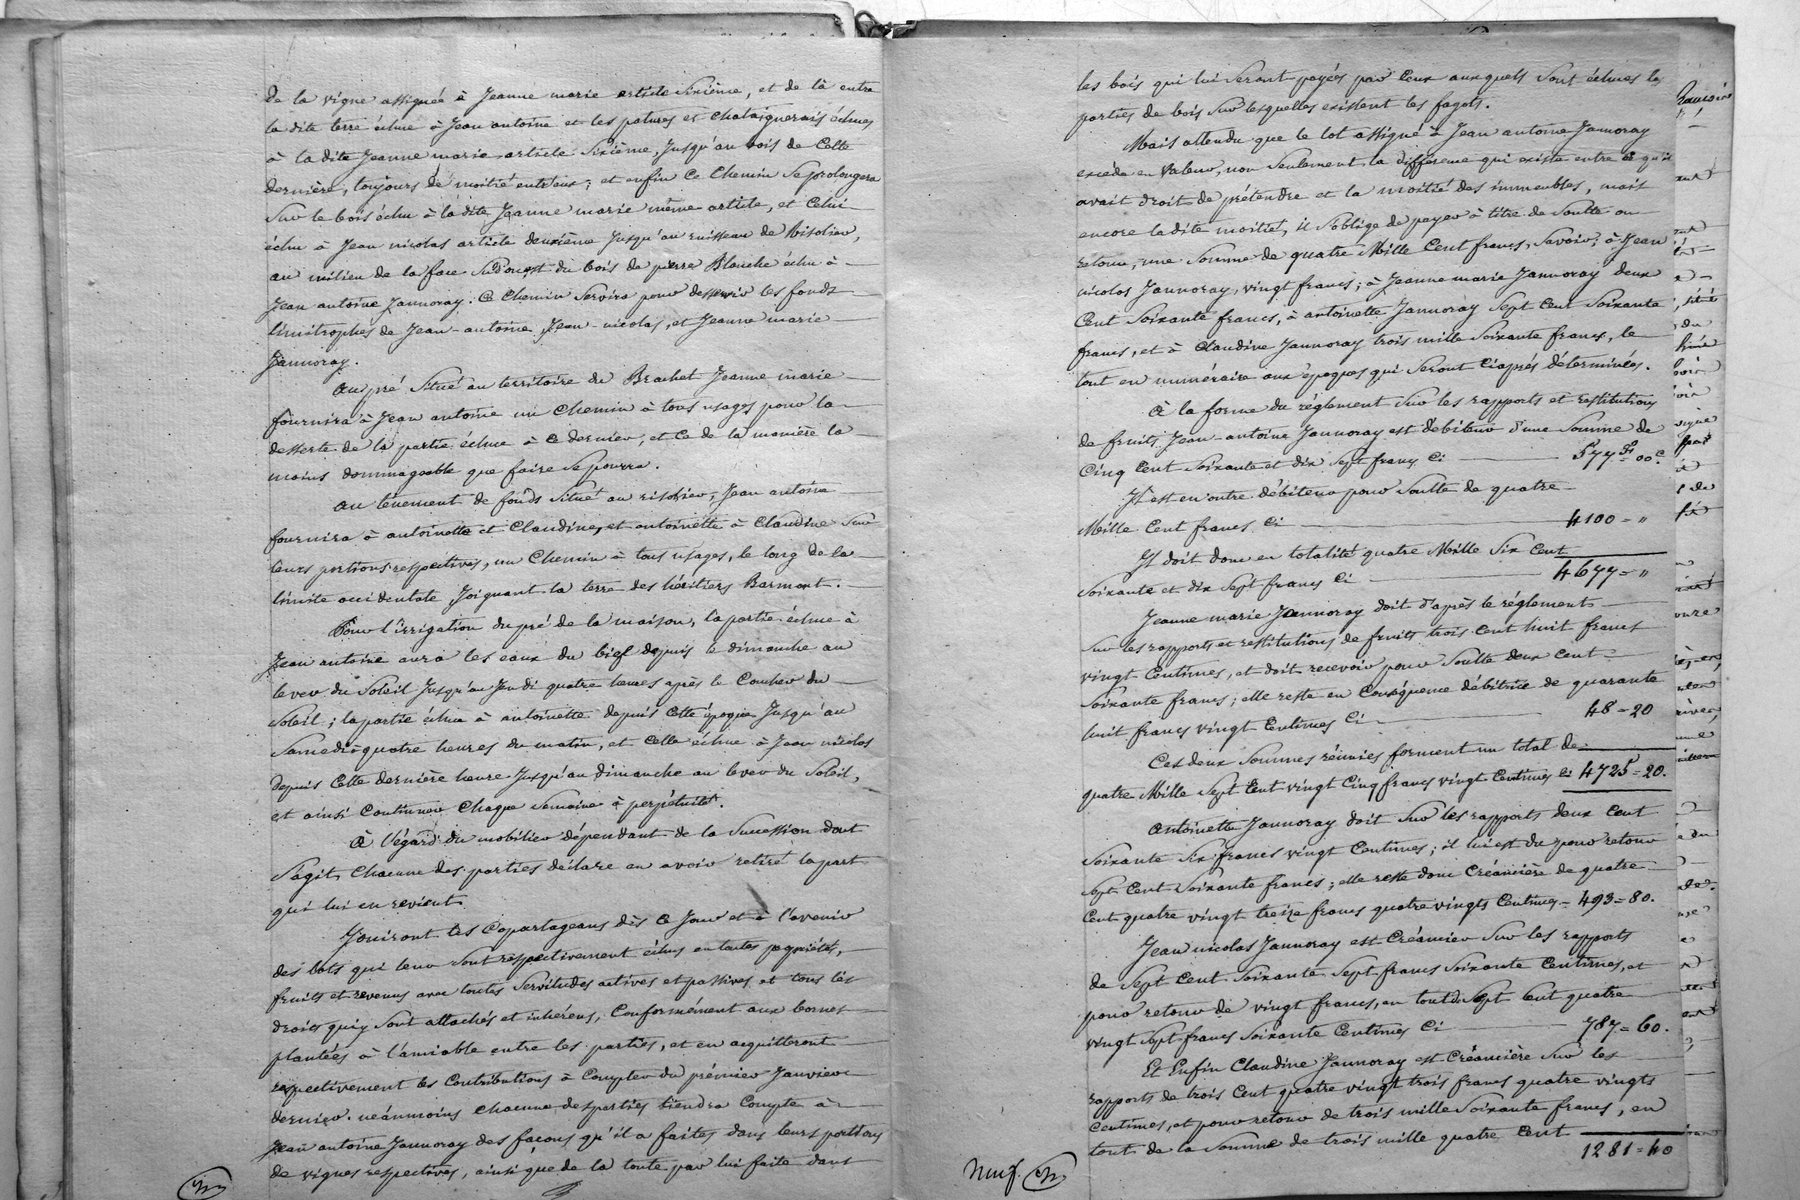 de la vigne assignée à Jeanne marie article Sixième, et de là entre
la dite terre échue à Jean antoine et les patures et chataignerais échues
à la dite Jeanne marie article Sixième, Jusqu'au bois de Cette
dernière, toujours de moitié entr'eux; et enfin ce Chemin Se prolongera
Sur le bois échu à la dite Jeanne marie même article, et Celui
échu à Jean nicolas article deuxième Jusqu'au ruisseau de
au milieu de la face Sud ouest du bois de pierre Blanche échu à
Jean antoine Jannoray. Ce Chemin Servira pour desservir les fonds
limitrophes de Jean-antoine, Jean-nicolas, et Jeanne marie
Jannoray.
Au pré Situé au territoire du Brachet Jeanne marie
fournira à Jean antoine un Chemin à tous usages pour la
desserte de la partie échue à ce dernier, et Ce de la manière la
moins dommageable que faire Se pourra.
Au tènement de fonds Situé au Jean antoine
fournira à antoinette et Claudine, et antoinette à Claudine Sur
leurs portions respectives, un Chemin à tous usages, le long de la
limite occidentale Joignant la terre des héritiers Barmont.
Pour l'irrigation du pré de la maison, la partie échue à
Jean antoine aura les eaux du bief depuis le dimanche au
lever du Soleil Jusqu'au Jeudi quatre heures après le Coucher du
Soleil; la partie échue à antoinette depuis Cette époque Jusqu'au
Samedi à quatre heures du matin, et Celle échue à Jean nicolas
depuis Cette dernière heure Jusqu'au dimanche au lever du Soleil,
et ainsi Continuer Chaque Semaine à perpétuité.
À l'égard du mobilier dépendant de la Succession dont
S'agit, Chacune des parties déclare en avoir retiré la part
qui lui en revient.
Jouiront les Copartageans dès ce Jour et à l'avenir
des lots qui leur Sont respectivement échus en toutes propriétés,
fruits et revenus avec toutes Servitudes actives et passives et tous les
droits qui y Sont attachés et inhérens, Conformément aux bornes
plantées à l'amiable entre les parties, et en acquitteront
respectivement les Contributions à Compter du prémier Janvier
dernier. néanmoins chacune des parties tiendra Compte à
Jean antoine Jannoray des façons qu'il a faites dans leurs portions
de vignes respectives, ainsi que de la toute par lui faite dans
les bois qui lui Seront payés par Ceux auxquels Sont échues les
parties de bois Sur lesquelles existent les fagots.
Mais attendu que le lot assigné à Jean antoine Jannoray
excède en Valeur, non Seulement la différence qui existe entre ce qu'il
avait droit de prétendre et la moitié des immeubles, mais
encore la dite moitié, il S'oblige de payer à titre de Soulte ou
retour, une Somme de quatre Mille Cent francs, Savoir: à Jean
nicolas Jannoray, vingt francs; à Jeanne marie Jannoray deux
Cent Soixante francs, à antoinette Jannoray Sept Cent Soixante
francs, et à Claudine Jannoray trois mille Soixante francs, le
tout en numéraire aux époques qui Seront Ciaprès déterminées.
À la forme du réglement Sur les rapports et restitutions
de fruits Jean-antoine Jannoray est débiteur d'une Somme de
Cinq Cent Soixante et dix Sept francs Ci 577 fs 00 c.
Il est en outre débiteur pour Soulte de quatre
Mille Cent francs Ci 4100 = "
Il doit donc en totalité quatre Mille Six Cent
Soixante et dix Sept francs Ci 4677 = "
Jeanne marie Jannoray doit d'après le réglement
Sur les rapports et restitutions de fruits trois Cent huit francs
vingt Centimes, et doit recevoir pour Soulte deux Cent
Soixante francs; elle reste en Conséquence débitrice de quarante
huit francs vingt Centimes Ci 48 = 20
Ces deux Sommes réunies forment un total de
quatre Mille Sept Cent vingt Cinq francs vingt Centimes Ci 4725 = 20.
Antoinette Jannoray doit Sur les rapports deux Cent
Soixante Six francs vingt Centimes; il lui est du pour retour
Sept Cent Soixante francs; elle reste donc Créancière de quatre
Cent quatre vingt treize francs quatre vingts Centimes = 493 = 80.
Jean nicolas Jannoray est Créancier Sur les rapports
de Sept Cent Soixante Sept francs Soixante Centimes, et
pour retour de vingt francs, en tout de Sept Cent quatre
vingt Sept francs Soixante Centimes Ci 787 = 60.
Et Enfin Claudine Jannoray est Créancière Sur les
rapports de trois Cent quatre vingt trois francs quatre vingts
Centimes, et pour retour de trois mille Soixante francs, en
tout de la Somme de trois mille quatre Cent
1281 = 40
Neuf.